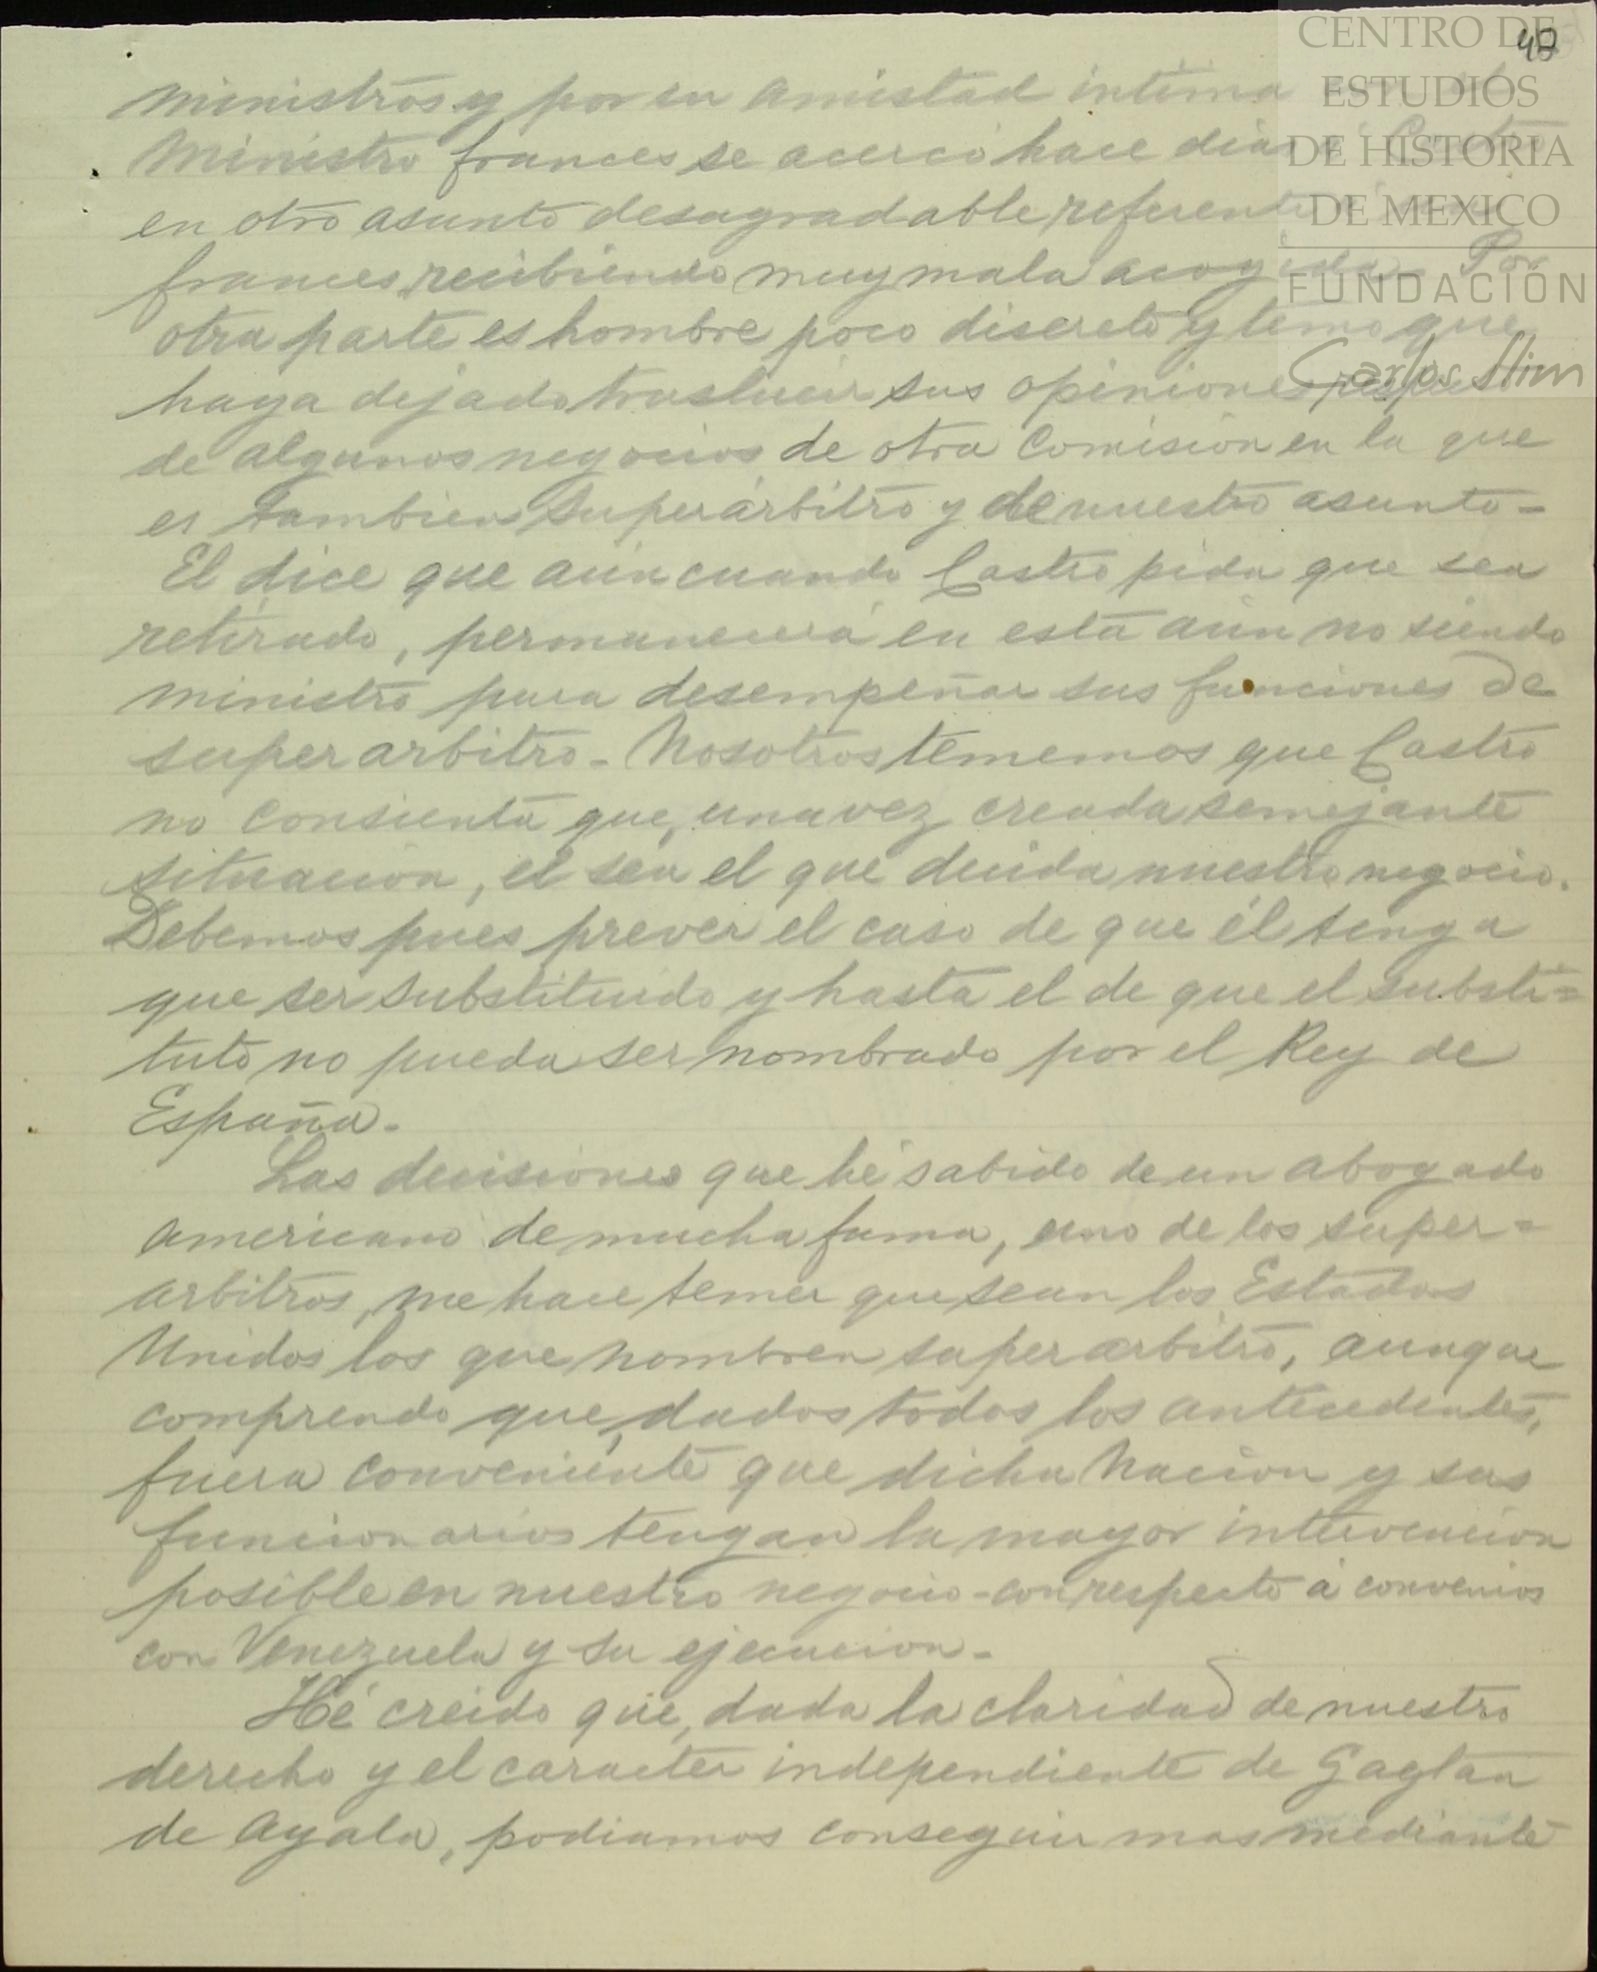 42
CENTRO DE
ESTUDIOS
DE HISTORIA
DE MEXICO
FUNDACIÓN
Carlos Slim
ministros y por su amistad intima
Ministro frances se acercó hace dias á Castro
en otro asunto desagradable, referente
frances, recibiendo muy mala acogida. Por
otra parte es hombre poco discreto y temo que
haya dejado traslucir sus opiniones respecto
de algunos negocios de otra Comision en la que
es tambien superárbitro y de nuestro asunto-
El dice que aún cuando Castro pida que sea
retirado, permanecerá en esta aún no siendo
ministro para desempeñar sus funciones de
superarbitro- Nosotros tememos que Castro
no consienta que, una vez creada semejante
situacion, él sea el que decida nuestro negocio.
Debemos pues prever el caso de que él tenga
que ser substituido y hasta el de que el substi=
tuto no pueda ser nombrado por el Rey de
España-
Las decisiones que hé sabido de un abogado
americano de mucha fama, uno de los super=
arbitros, me hace temer que sean los Estados
Unidos los que nombren superarbitro, aunque
comprendo que, dados todos los antecedentes,
fuera conveniente que dicha Nacion y sus
funcionarios tengan la mayor intervencion
posible en nuestro negocio-con respecto á convenios
con Venezuela y su ejecucion-
Hé creido que, dada la claridad de nuestro
derecho y el caracter independiente de Gaytan
de Ayala, podiamos conseguir mas mediante